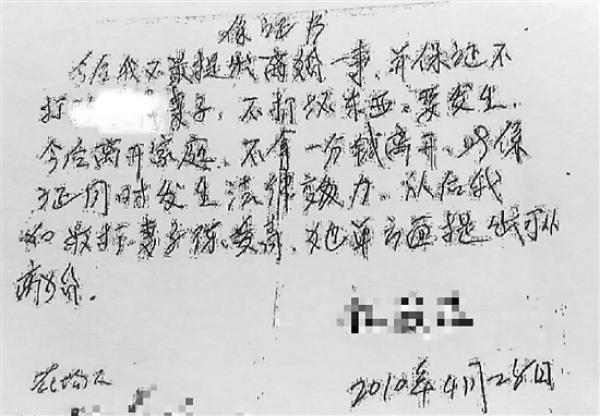 保证书
今后我不敢提出离婚一事,并保证不
打 妻子,不打坏东西,要发生,
今后离开家庭,不拿一分钱离开,此保
证同时发生法律效力,从后我
如敢打妻子 , ,她单方面提出我可以
离婚。
2010年4月28日